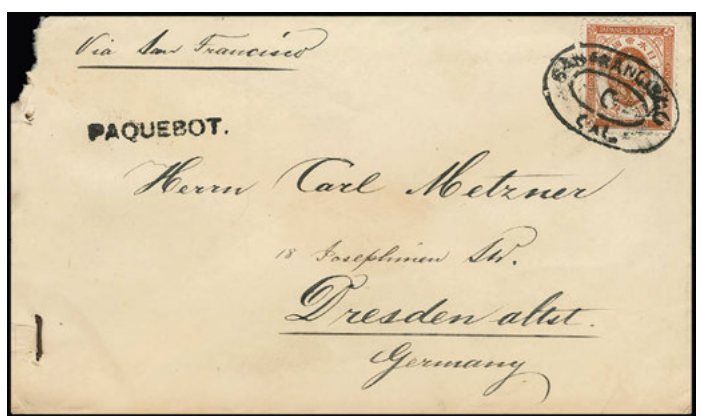 Via San Francisco
JAPANESE EMPIRE
SAN FRANCISCO
CAL.
PAQUEBOT.
Herrn Carl Metzner
18 Josephinen Str.
Dresden altst.
Germany